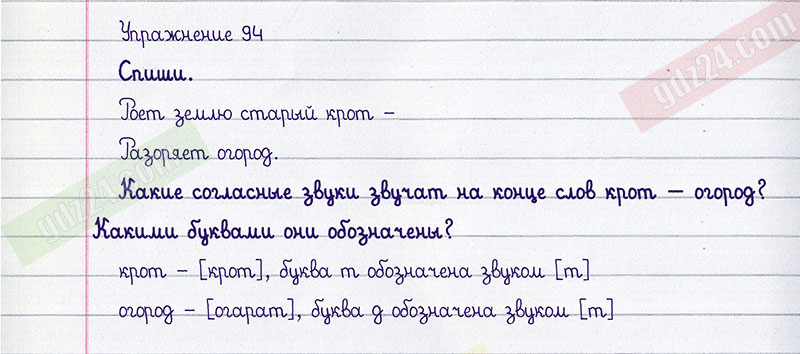 Упражнение 94
gdz24.com
Спиши.
Роет землю старый крот –
Разоряет огород.
gdz24.com
Какие согласные звуки звучат на конце слов крот – огород?
Какими буквами они обозначены?
крот – [крот], буква т обозначена звуком [т]
огород – [огарат], буква д обозначена звуком [т]